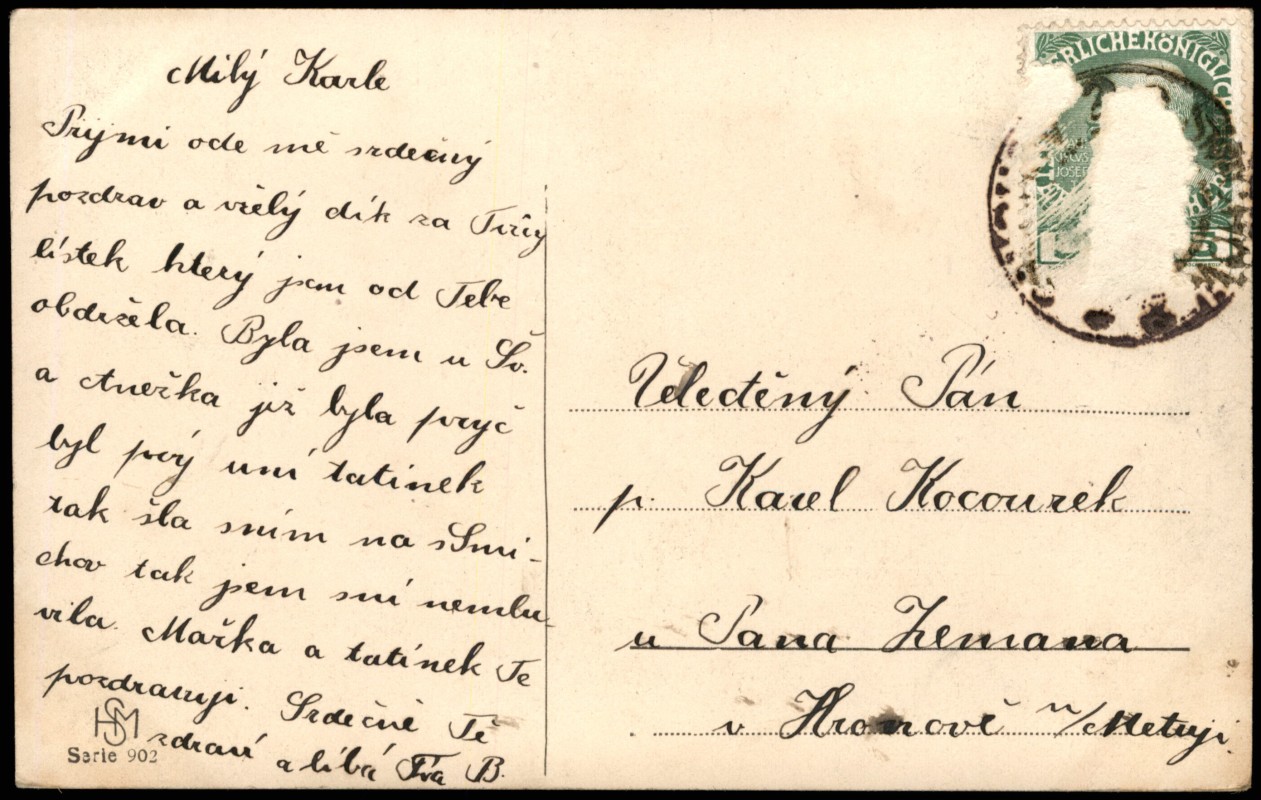 Milý Karle
Prijmi ode mě srdečný
pozdrav a vřelý dík za Tvůj
lístek který jsem od Tebe
obdržela. Byla jsem u Šv.
a Anežka již byla pryč
byl prý uní tatínek
tak šla sním na sSmi-
chov tak jsem sní nemlu-
vila. Mařka a tatínek Te
pozdravuji. Srdečně Tě
zdraví a líbá Tva B.
HSM
Serie 902
ERLICHEKÖNIGLICH
JOSEF
Velectěný Pán
p. Karel Kocourek
u Pana Zemana
v Hronově n/Metuji